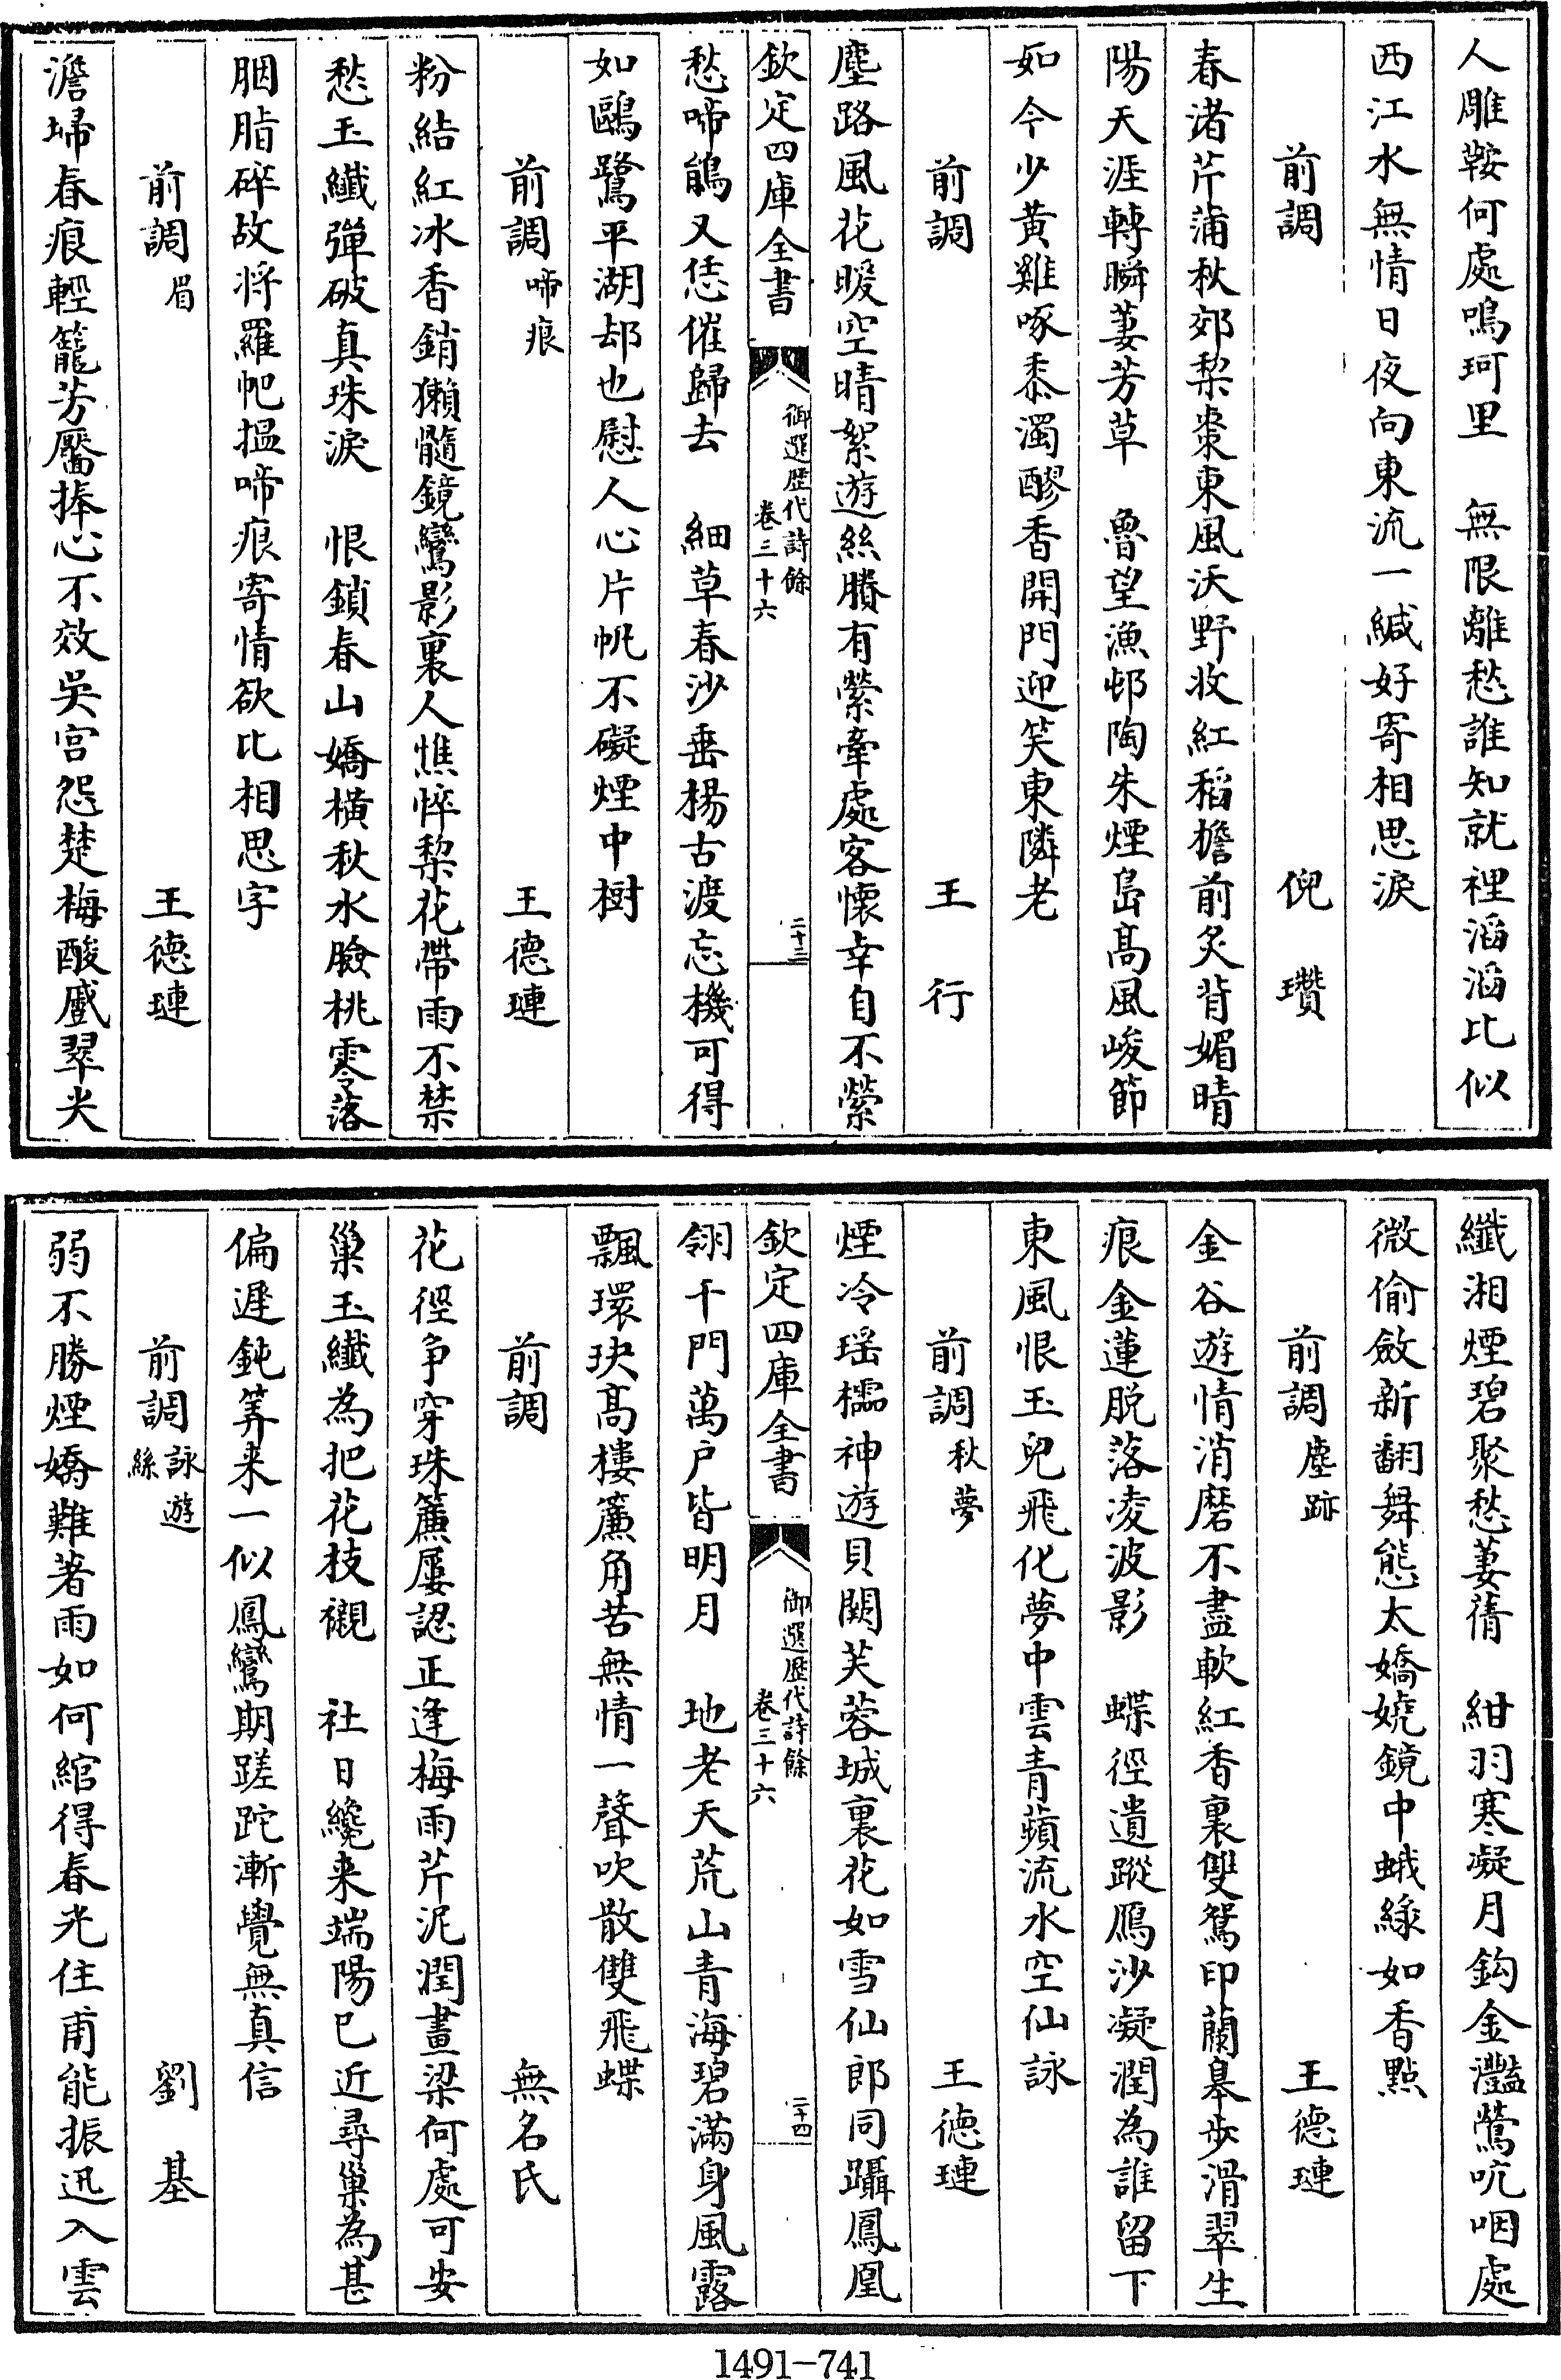 人雕鞍何處鳴珂里　無限離愁誰知就裡滔滔比似
西江水無情日夜向東流一緘好寄相思淚
前調　倪瓚
春渚芹蒲秋郊梨棗東風沃野收紅稻擔前炙背媚晴
陽天涯轉瞬萋芳草　魯望漁邨陶朱煙島髙風峻節
如今少黃雞啄黍濁醪香開門迎笑東隣老
前調　王行
塵路風花暖空晴絮遊絲賸有縈牽處客懷幸自不縈
欽定四庫全書　御選歷代詩餘　卷三十六　二十三
愁啼鵑又恁催歸去　細草春沙垂楊古渡忘機可得
如鷗鷺平湖却也慰人心片帆不礙煙中樹
前調啼痕　王德璉
粉結紅冰香銷獺髓鏡鸞影裏人憔悴梨花帶雨不禁
愁玉纖彈破真珠淚　恨鎖春山嬌橫秋水臉桃零落
胭脂碎故將羅帊揾啼痕寄情欲比相思字
前調眉　王德璉
澹埽春痕輕籠芳靨捧心不效吳宮怨楚梅酸蹙翠尖
纖湘煙碧聚愁萋蒨　紺羽寒凝月鈎金灩鶯吭咽處
微偷斂新翻舞態太嬌嬈鏡中蛾綠如香點
前調塵跡　王德璉
金谷遊情消磨不盡軟紅香裏雙鴛印蘭皋步滑翠生
痕金蓮脫落凌波影　蝶徑遺蹤鴈沙凝潤為誰留下
東風恨玉兒飛化夢中雲青蘋流水空仙詠
前調秋夢　王德璉
煙冷瑶櫺神遊貝闕芙蓉城裏花如雪仙郎同躡鳳凰
欽定四庫全書　御選歷代詩餘　卷三十六　二十四
翎千門萬户皆明月　地老天荒山青海碧滿身風露
飄環玦髙樓簾角苦無情一聲吹散雙飛蝶
前調　無名氏
花徑争穿珠簾屢認正逢梅雨芹泥潤畫梁何處可安
巢玉纖為把花枝襯　社日纔来端陽已近尋巢為甚
偏遲鈍筭来一似鳳鸞期蹉跎漸覺無真信
前調詠遊絲　劉基
弱不勝煙嬌難著雨如何綰得春光住甫能振迅入雲
1491-741